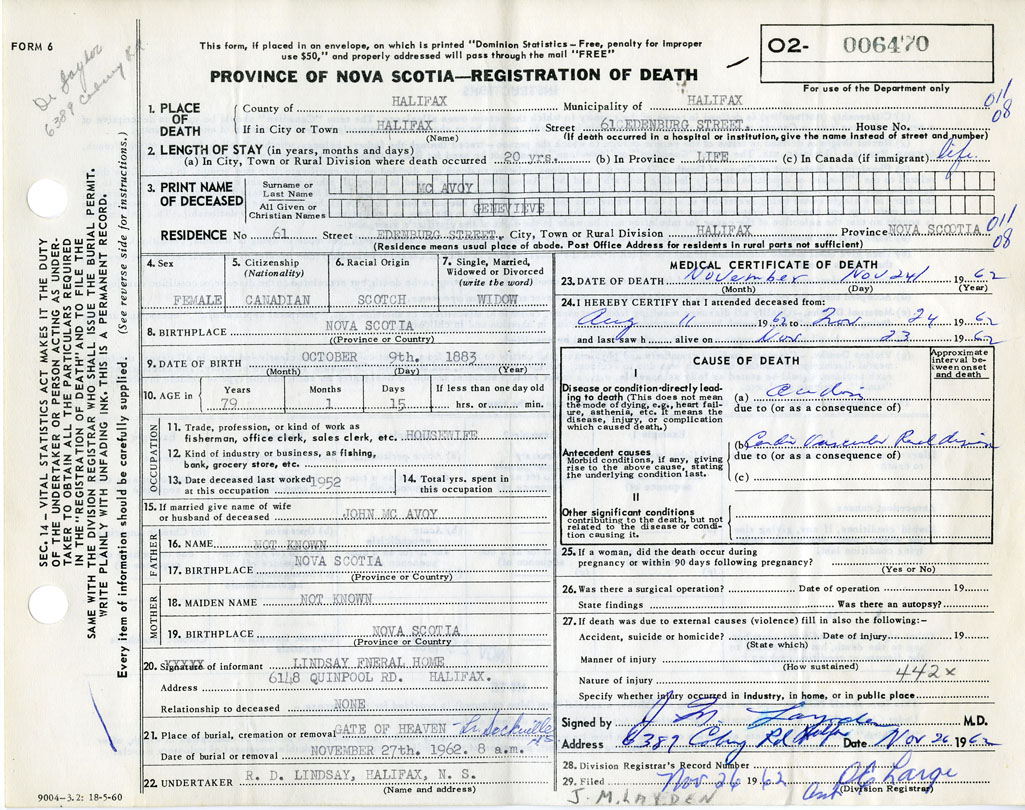 FORM 6
Dr Laydon
6389 Coburg Rd
This form, if placed in an envelope, on which is printed "Dominion Statistics - Free, penalty for improper
use $50," and properly addressed will pass through the mail "FREE"
O2- 006470
PROVINCE OF NOVA SCOTIA—REGISTRATION OF DEATH
For use of the Department only
011
08
1. PLACE OF DEATH
County of HALIFAX Municipality of HALIFAX
If in City or Town HALIFAX Street EDENBURG STREET. House No.
(Name) (If death occurred in a hospital or institution, give the name instead of street and number)
2. LENGTH OF STAY (in years, months and days)
(a) In City, Town or Rural Division where death occurred 20 yrs. (b) In Province LIFE (c) In Canada (if immigrant) life
3. PRINT NAME OF DECEASED
Surname or Last Name MC AVOY
All Given or Christian Names GENEVIEVE
011
08
RESIDENCE No 61 Street EDENBURG STREET. City, Town or Rural Division HALIFAX Province NOVA SCOTIA
(Residence means usual place of abode. Post Office Address for residents in rural parts not sufficient)
4. Sex
FEMALE
5. Citizenship
(Nationality)
CANADIAN
6. Racial Origin
SCOTCH
7. Single, Married,
Widowed or Divorced
(write the word)
WIDOW
8. BIRTHPLACE NOVA SCOTIA
((Province or Country)
9. DATE OF BIRTH OCTOBER 9th. 1883
(Month) (Day) (Year)
10. AGE in
Years Months Days If less than one day old
79 1 15 hrs. or min.
OCCUPATION
11. Trade, profession, or kind of work as
fisherman, office clerk, sales clerk, etc. HOUSEWIFE
12. Kind of industry or business, as fishing,
bank, grocery store, etc.
13. Date deceased last worked 1952
at this occupation
14. Total yrs. spent in
this occupation
15. If married give name of wife
or husband of deceased JOHN MC AVOY
FATHER
16. NAME NOT KNOWN
17. BIRTHPLACE NOVA SCOTIA
(Province or Country)
MOTHER
18. MAIDEN NAME NOT KNOWN
19. BIRTHPLACE NOVA SCOTIA
(Province or Country
20. Signature of informant LINDSAY FNERAL HOME
Address 6148 QUINPOOL RD. HALIFAX.
Relationship to deceased NONE
21. Place of burial, cremation or removal GATE OF HEAVEN Lr. Sackville NS
Date of burial or removal NOVEMBER 27th. 1962. 8 a.m.
22. UNDERTAKER R. D. LINDSAY, HALIFAX, N. S.
(Name and address)
9004-3.2: 18-5-60
MEDICAL CERTIFICATE OF DEATH
23. DATE OF DEATH November Nov 24 1962
(Month) (Day) (Year)
24. I HEREBY CERTIFY that I attended deceased from:
Aug 11 1962 to Nov 24 1962
and last saw h alive on Nov 23 1962
CAUSE OF DEATH
Approximate interval between onset and death
I
Disease or condition directly leading to death (This does not mean
the mode of dying, e.g., heart failure, asthenia, etc. It means the
disease, injury, or complication
which caused death.)
(a)
due to (or as a consequence of)
Antecedent causes
Morbid conditions, if any, giving
rise to the above cause, stating
the underlying condition last.
(b) Cardio Vascular Renal disease
due to (or as a consequence of)
(c)
II
Other significant conditions
contributing to the death, but not
related to the disease or condition causing it.
25. If a woman, did the death occur during
pregnancy or within 90 days following pregnancy?
(Yes or No)
26. Was there a surgical operation? Date of operation 19
State findings Was there an autopsy?
27. If death was due to external causes (violence) fill in also the following:-
Accident, suicide or homicide? Date of injury 19
(State which)
Manner of injury
(How sustained)
Nature of injury 442x
Specify whether injury occurred in industry, in home, or in public place
Signed by J M Layden M.D.
Address 6389 Coburg Rd Halifax Date Nov 26 1962
28. Division Registrar's Record Number
29. Filed Nov 26 1962 Large
(Division Registrar)
J. M. LAYDEN
SEC. 14 - VITAL STATISTICS ACT MAKES IT THE DUTY
OF THE UNDERTAKER OR PERSON ACTING AS UNDER-
TAKER TO OBTAIN ALL THE PARTICULARS REQUIRED
IN THE "REGISTRATION OF DEATH" AND TO FILE THE
SAME WITH THE DIVISION REGISTRAR WHO SHALL ISSUE THE BURIAL PERMIT.
WRITE PLAINLY WITH UNFADING INK. THIS IS A PERMANENT RECORD.
Every item of information should be carefully supplied. (See reverse side for instructions.)